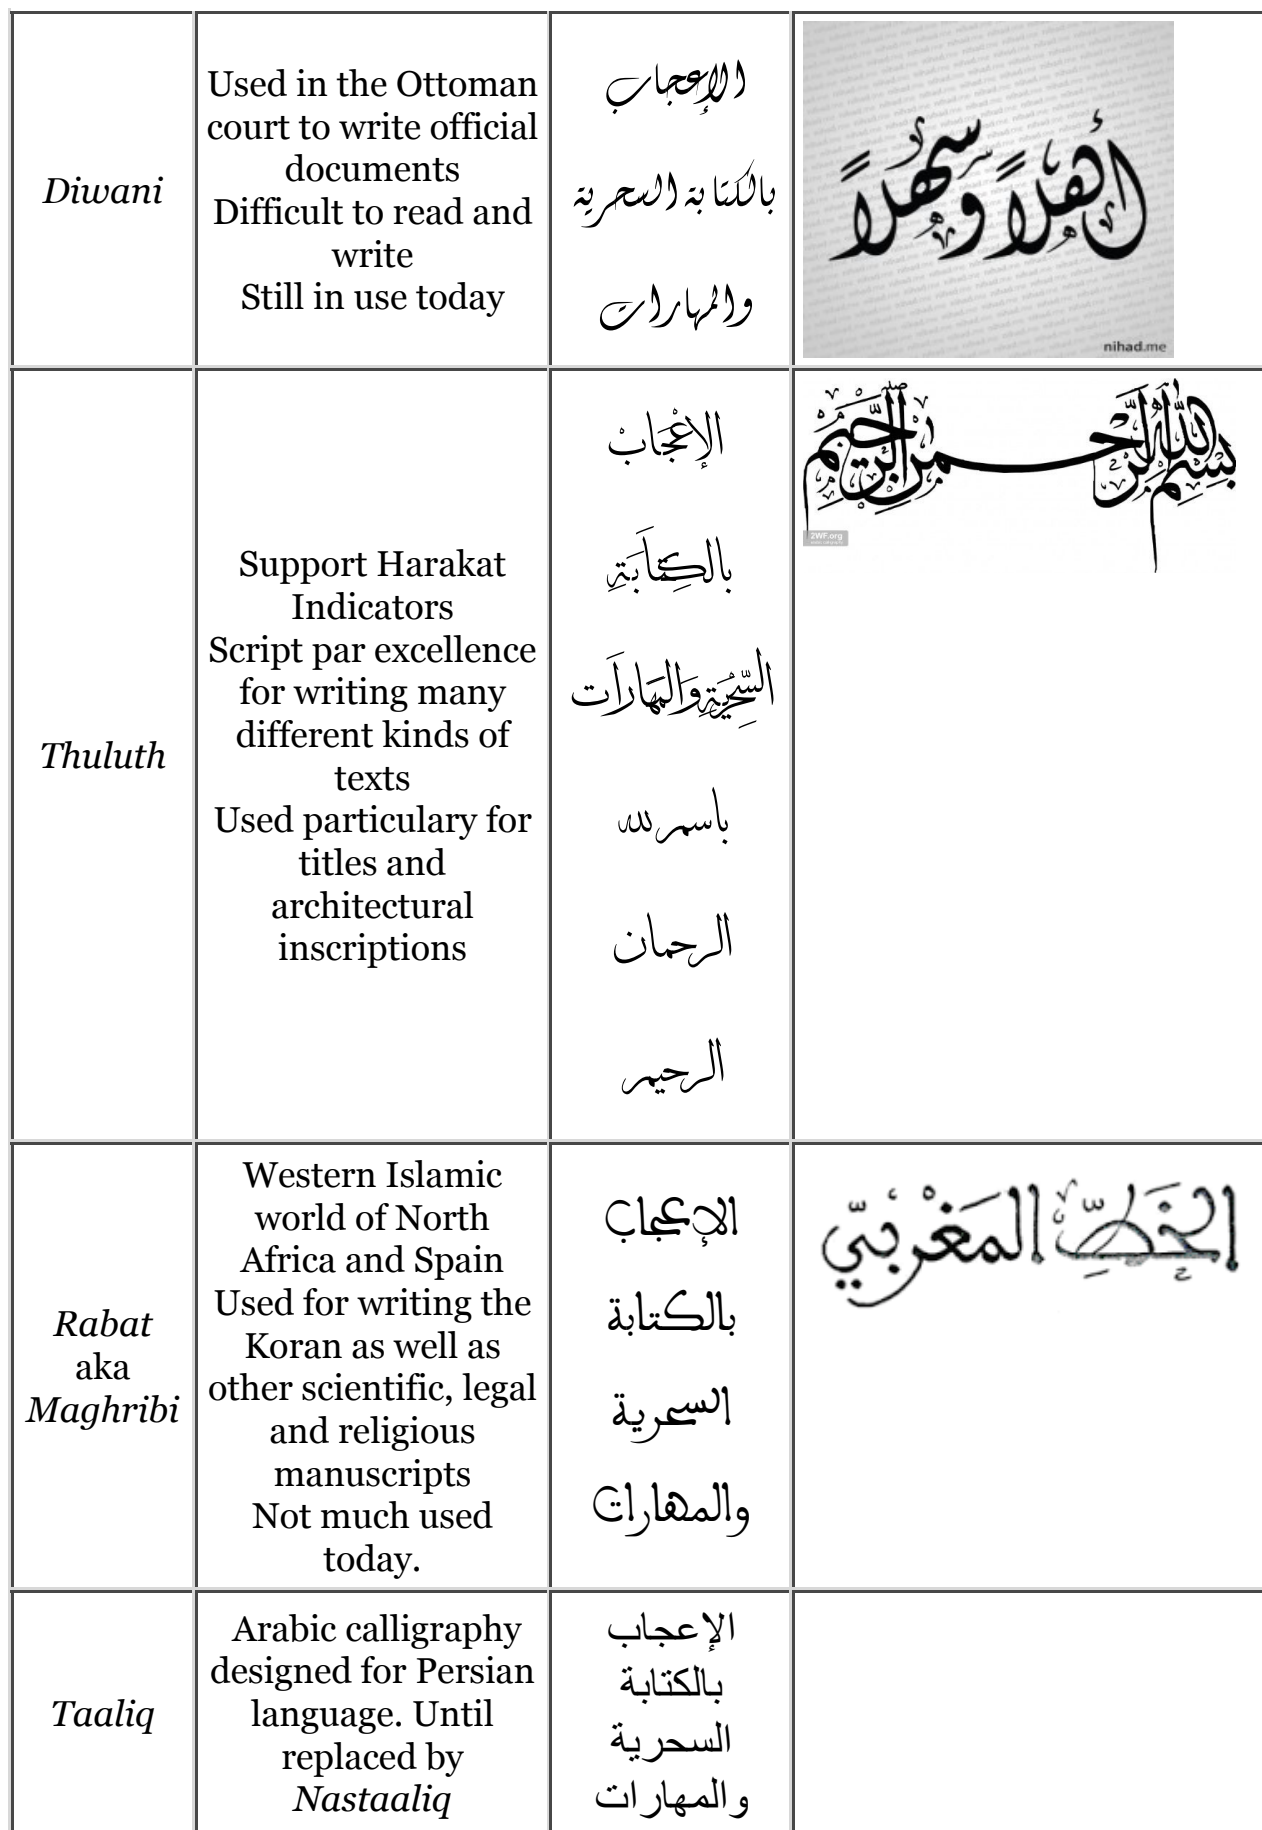 Diwani
Used in the Ottoman
court to write official
documents
Difficult to read and
write
Still in use today
الإعجاب
بالكتابة السحرية
والمهارات
أهلاً وسهلاً
nihad.me
Thuluth
Support Harakat
Indicators
Script par excellence
for writing many
different kinds of
texts
Used particulary for
titles and
architectural
inscriptions
الإعْجَابْ
بالكِتَابَةِ
السِّحْرِيَةِ وَالمَهَارَات
باسم لله
الرحمان
الرحيم
بِسْمِ اللَّهِ الرَّحْمنِ الرَّحِيمِ
2WF.org
Rabat
aka
Maghribi
Western Islamic
world of North
Africa and Spain
Used for writing the
Koran as well as
other scientific, legal
and religious
manuscripts
Not much used
today.
الإعجاب
بالكتابة
السحرية
والمهارات
الخَطِّ المَغْرِبيّ
Taaliq
Arabic calligraphy
designed for Persian
language. Until
replaced by
Nastaaliq
الإعجاب
بالكتابة
السحرية
والمهارات